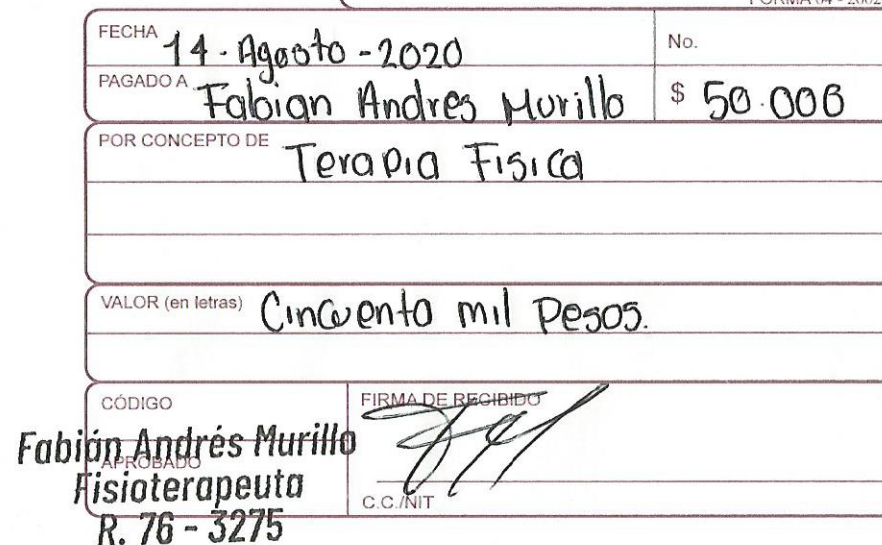 FORMA 04 - 2002
FECHA 14 - Agosto - 2020 No.
PAGADO A Fabian Andres Murillo $ 50.000
POR CONCEPTO DE Terapia Fisica
VALOR (en letras) Cincuenta mil pesos.
CÓDIGO FIRMA DE RECIBIDO
Fabián Andrés Murillo
APROBADO
Fisioterapeuta
C.C./NIT
R. 76 - 3275